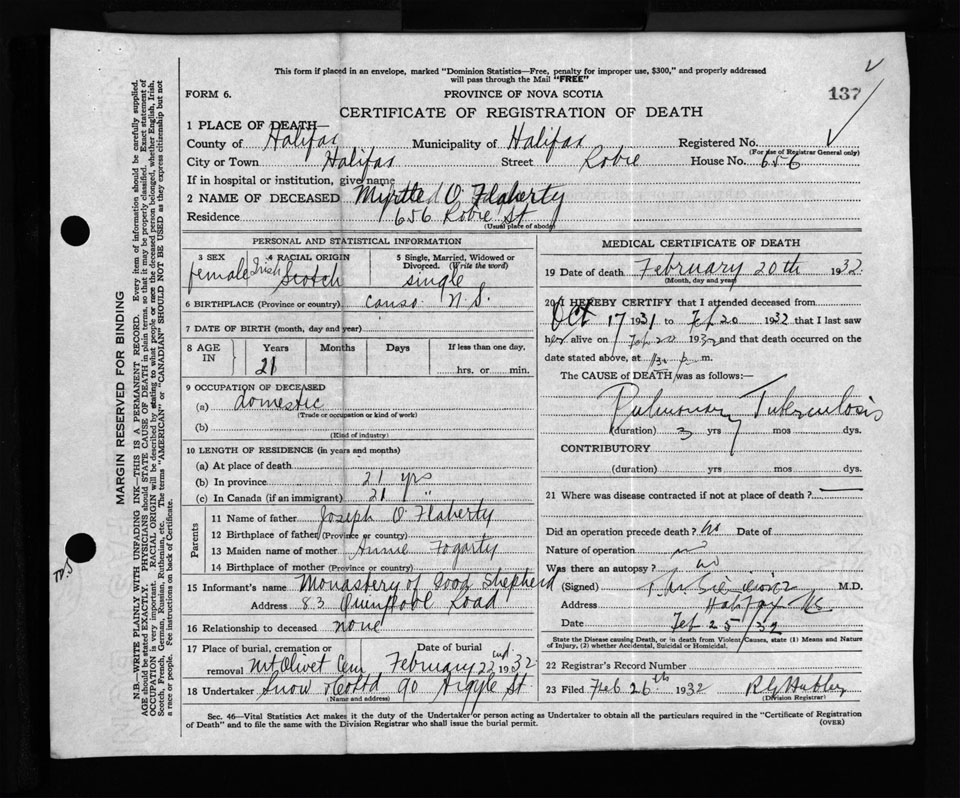 This form if placed in an envelope, marked "Dominion Statistics—Free, penalty for improper use, $300," and properly addressed
will pass through the Mail "FREE"
FORM 6.
PROVINCE OF NOVA SCOTIA
137
CERTIFICATE OF REGISTRATION OF DEATH
1 PLACE OF DEATH—
County of Halifax Municipality of Halifax Registered No.
(For use of Registrar General only)
City or Town Halifax Street Robie House No. 656
If in hospital or institution, give name
2 NAME OF DECEASED Myrtle O'Flaherty
Residence 656 Robie St
(Usual place of abode)
PERSONAL AND STATISTICAL INFORMATION
3 SEX female
4 RACIAL ORIGIN Irish Scotch
5 Single, Married, Widowed or
Divorced. (Write the word)
single
6 BIRTHPLACE (Province or country) Canso N.S.
7 DATE OF BIRTH (month, day and year)
8 AGE IN Years Months Days If less than one day.
21 hrs. or min.
9 OCCUPATION OF DECEASED
(a) domestic
(Trade or occupation or kind of work)
(b)
(Kind of industry)
10 LENGTH OF RESIDENCE (in years and months)
(a) At place of death
(b) In province 21 yrs
(c) In Canada (if an immigrant) 21 "
Parents
11 Name of father Joseph O'Flaherty
12 Birthplace of father (Province or country)
13 Maiden name of mother Annie Fogarty
14 Birthplace of mother (Province or country)
15 Informant's name Monastery of Good Shepherd
Address 83 Quinpool Road
16 Relationship to deceased none
17 Place of burial, cremation or
removal Mt. Olivet Cem
Date of burial
February 22nd 1932
18 Undertaker Snow & Co Ltd 90 Argyle St
(Name and address)
MEDICAL CERTIFICATE OF DEATH
19 Date of death February 20th 1932
(Month, day and year)
20 I HEREBY CERTIFY that I attended deceased from
Oct 17 1931 to Feb 20 1932 that I last saw
her alive on Feb 20 1932 and that death occurred on the
date stated above, at p. m.
The CAUSE of DEATH was as follows:—
Pulmonary Tuberculosis
(duration) 3 yrs mos dys.
CONTRIBUTORY
(duration) yrs mos dys.
21 Where was disease contracted if not at place of death?
Did an operation precede death? no Date of
Nature of operation
Was there an autopsy? no
(Signed) M.D.
Address Halifax NS
Date Feb 25/32
State the Disease causing Death, or in death from Violent Causes, state (1) Means and Nature
of Injury, (2) whether Accidental, Suicidal or Homicidal.
22 Registrar's Record Number
23 Filed Feb 26th 1932
(Division Registrar)
Sec. 46—Vital Statistics Act makes it the duty of the Undertaker or person acting as Undertaker to obtain all the particulars required in the "Certificate of Registration
of Death" and to file the same with the Division Registrar who shall issue the burial permit.
(OVER)
MARGIN RESERVED FOR BINDING
N.B.—WRITE PLAINLY WITH UNFADING INK—THIS IS A PERMANENT RECORD. Every item of information should be carefully supplied.
AGE should be stated EXACTLY. PHYSICIANS should STATE CAUSE OF DEATH in plain terms, so that it may be properly classified. Exact statement of
OCCUPATION is very important. RACIAL ORIGIN will be described by stating to what people or race the deceased person belonged, whether English, Irish,
Scotch, French, German, Russian, Ruthenian, etc. The terms "AMERICAN" or "CANADIAN" SHOULD NOT BE USED as they express citizenship but not
a race or people. Fee instructions on back of Certificate.